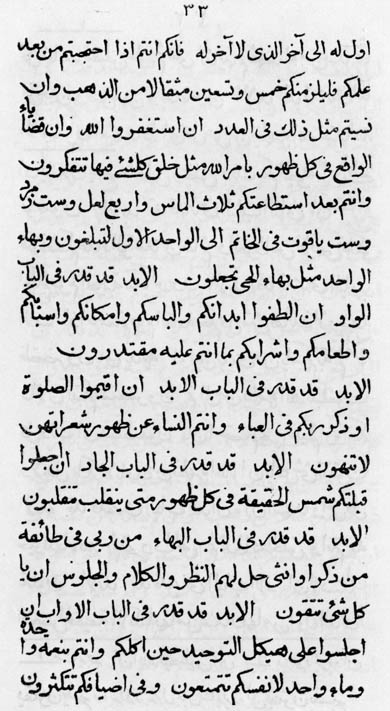 ٣٣
اول له الى آخر الذى لا آخر له فانكم انتم اذا احتجبتم من بعد
علمكم فليلزمنكم خمس وتسعين مثقالا من الذهب وان
نسيتم مثل ذلك فى العدد ان استغفروا الله وان قضاياء
الواقع فى كل ظهور بامر الله مثل خلق كلشئ فيها تتفكرون
وانتم بعد استطاعتكم ثلاث الماس واربع لعل وست زمرد
وست ياقوت فى الخاتم الى الواحد الاول لتبلغون وبهاء
الواحد مثل بهاء الحى تجعلون الابد قد قدر فى الباب
الواو ان الطفوا ابدانكم والباسكم وامكانكم واسبابكم
واطعامكم واشرابكم بما انتم عليه مقتدرون
الابد قد قدر فى الباب الابد ان اقيموا الصلوة
اوذكر ربكم فى العباء وانتم النساء عن ظهور شعراتهن
لا تنهون الابد قد قدر فى الباب الجاد ان اجعلوا
قبلتكم شمس الحقيقة فى كل ظهور متى ينقلب تنقلبون
الابد قد قدر فى الباب البهاء من ربى فى طائفة
من ذكر او انثى حل لهم النظر والكلام والجلوس ان يا
كل شئ تتقون الابد قد قدر فى الباب الاواب ان
اجلسوا على هيكل التوحيد حين اكلكم وانتم بنعمة واحدة
وماء واحد لانفسكم تتمتعون وفى اضيافكم تتكثرون